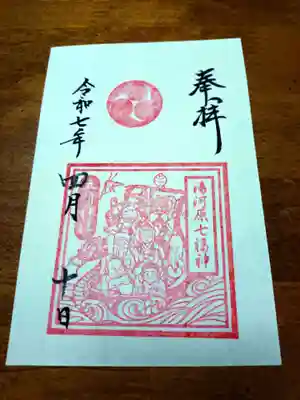 奉拝
湯河原七福神
令和七年
四月
十日